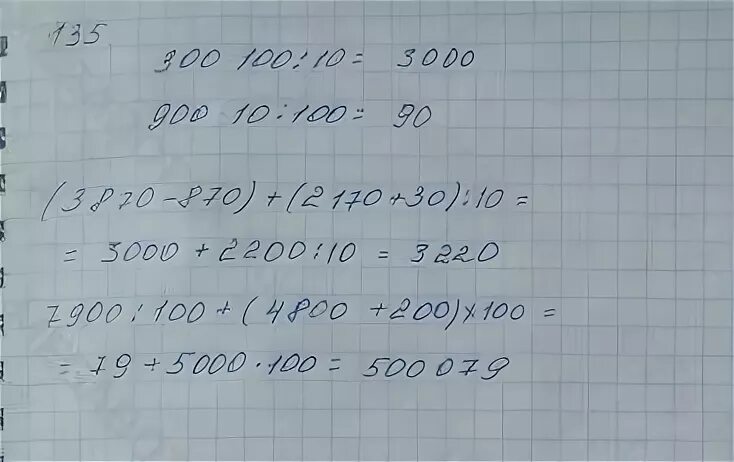 135
300 100:10= 3000
900 10:100= 90
(3870-870)+(2170+30):10=
= 3000 + 2200:10 = 3220
7900:100+(4800 +200)×100 =
= 79 + 5000·100 = 500079